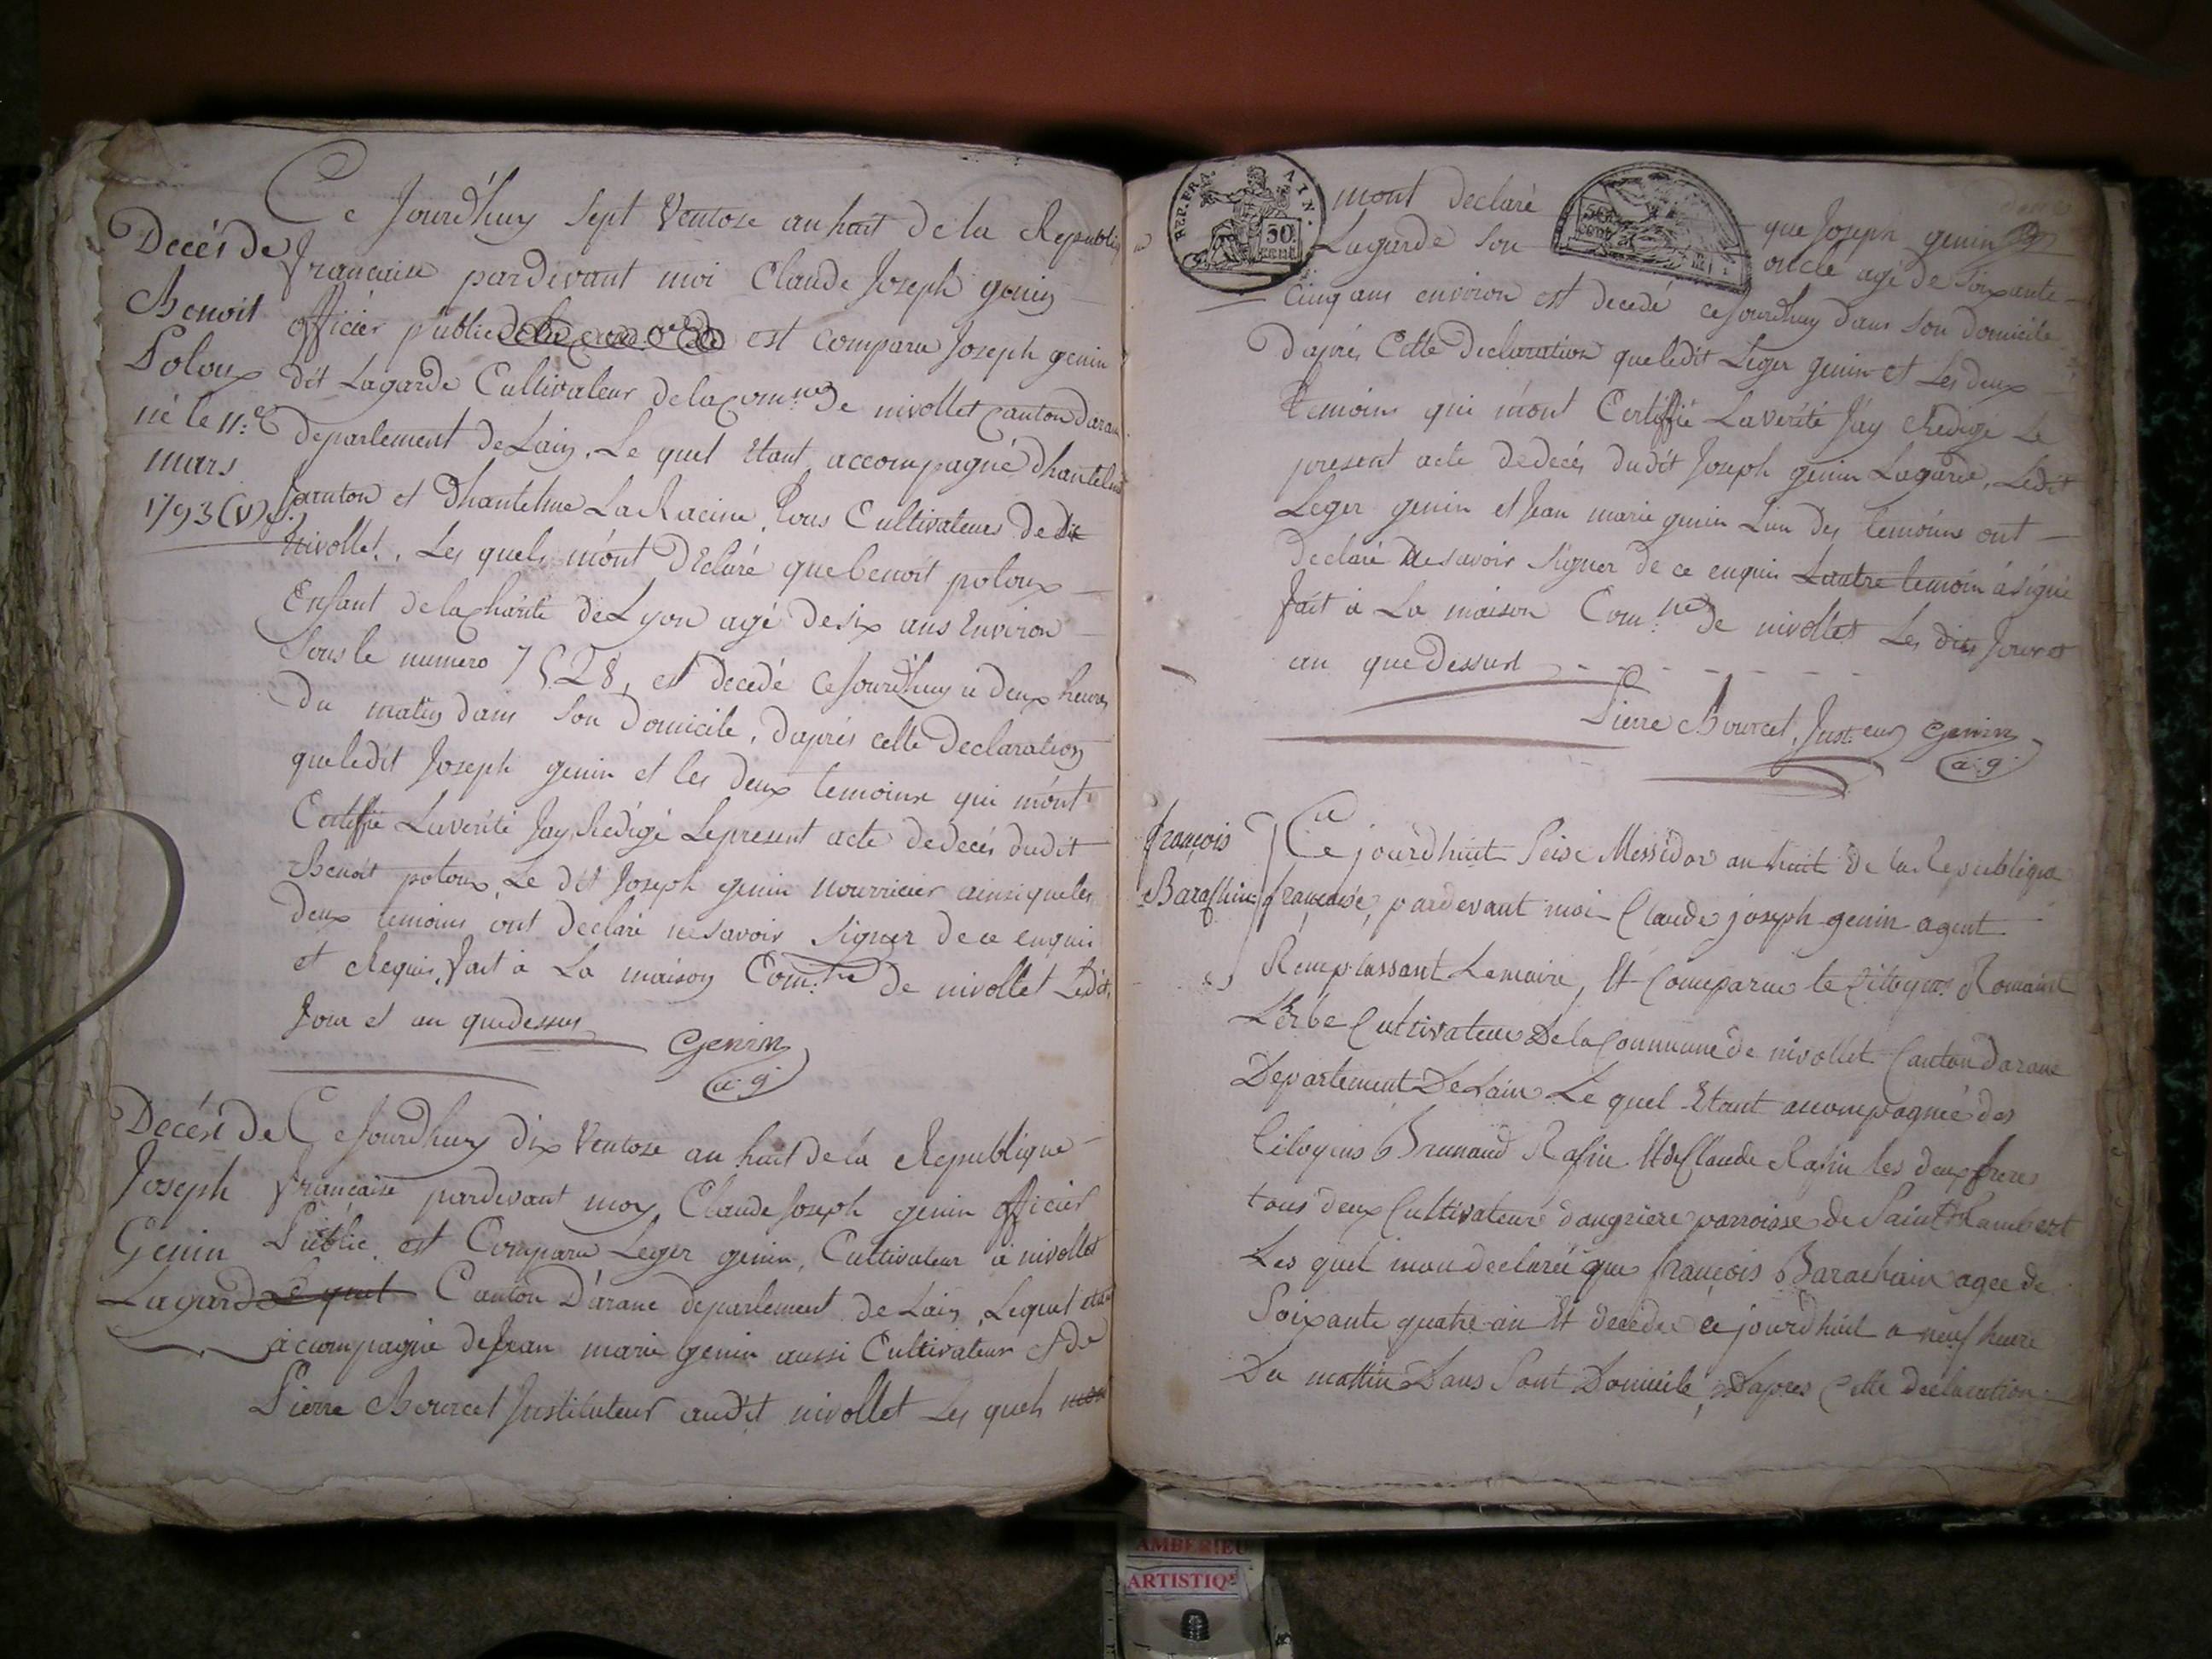 Ce Jourdhuy Sept Ventose an huit de la Republiq
Decés de
Benoit
Poloux
né le 11.e
mars
1793 (v) s.
francaise pardevant moi Claude Joseph genin
officier public est comparu Joseph genin
dit Lagarde Cultivateur de la com.ne de nivollet canton daran
departement de Lain, Le quel Etant accompagné dhantelme
et Dhantelme La Racine, Tous Cultivateurs de dit
Nivollet, Les quels m'ont Déclaré que benoit poloux
Enfant de la charité de Lyon agé de six ans Environ
Sous le numero 7528, est decedé ce Jourdhuy a deux heures
Du matin dans son Domicile, daprés cette Declaration
que ledit Joseph genin et les deux temoins qui m'ont
Certiffié La verité Jay Redigé Le present acte de decés dudit
Benoit poloux, Le dit Joseph genin nourricier ainsi que les
deux temoins ont declaré ne savoir Signer de ce enquis
et Requis, fait a La maison Com.ne de nivollet Ledit,
Jour et an que dessus
Genin
a: g:
Decést de
Joseph
Genin
Lagarde
Ce Jourdhuy dix Ventose an huit de la Republique
francaise pardevant moy Claude Joseph genin officier
Public est Comparu Leger genin, Cultivateur a nivollet
Le quel Canton D'arane departement de Lain, Lequel etant
accompagné de Jean marie genin aussi Cultivateur et de
Pierre Bourcet Instituteur audit nivollet Les quels mon
REP. FRA. AIN.
50 cent.
mont declaré que Joseph genin
Lagarde Son oncle agé de Soixante
Cinq ans environ est decedé ce Jourdhuy dans Son domicile
daprés Cette declaration que ledit Leger genin et Les deux
temoins qui m'ont Certiffié La verité Jay Redigé Le
present acte de decés dudit Joseph genin Lagarde, Ledit
Leger genin et Jean marie genin L'un des temoins ont
declaré ne savoir Signer de ce enquis Lautre temoin a signé
fait a La maison Com.ne de nivollet Les dits Jour et
an que dessus
Pierre Bourcet, Inst.eur Genin
a: g:
françois
Barachin
Ce jourd huit Seise Messidor an huit de la Republique
françaisé, pardevant moi Claude joseph genin agent
Remplassant Lemaire, Et Comparue le Citoyen Romain
Lerbe Cultivateur De la Commune de nivollet Canton darane
Departement De Lain Le quel Etant accompagnié des
Citoyens Brunand Rafin Et de Claude Rafin les deux freres
tous deux Cultivateur daugriere parroisse de Saint Rambert
Les quel mon declareé que françois Barachain agee de
Soixante quatre an Et decedee ce jourd huit a neuf heure
Du mattin Dans Sont Domicile, Dapres Cette declaration
AMBERIEU
ARTISTIQ